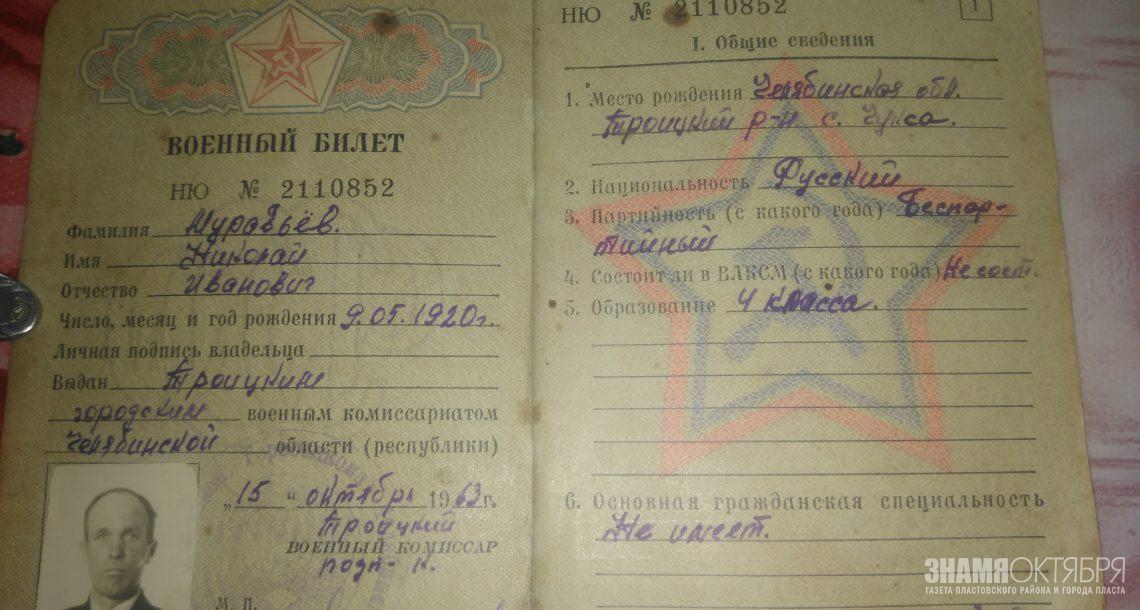 ВОЕННЫЙ БИЛЕТ
НЮ № 2110852
Фамилия Муравьёв.
Имя Николай
Отчество Иванович
Число, месяц и год рождения 9.05.1920г.
Личная подпись владельца
Выдан Троицким
городским военным комиссариатом
Челябинской области (республики)
„15" октября 1963г.
Троицкий
ВОЕННЫЙ КОМИССАР
подп-к.
М. П.
НЮ № 2110852
1
I. Общие сведения
1. Место рождения Челябинская обл.
Троицкий р-н с. Чукса.
2. Национальность Русский
3. Партийность (с какого года) Беспар-
тийный
4. Состоит ли в ВЛКСМ (с какого года) Не сост.
5. Образование 4 класса.
6. Основная гражданская специальность
Не имеет.
ЗНАМЯОКТЯБРЯ
ГАЗЕТА ПЛАСТОВСКОГО РАЙОНА И ГОРОДА ПЛАСТА